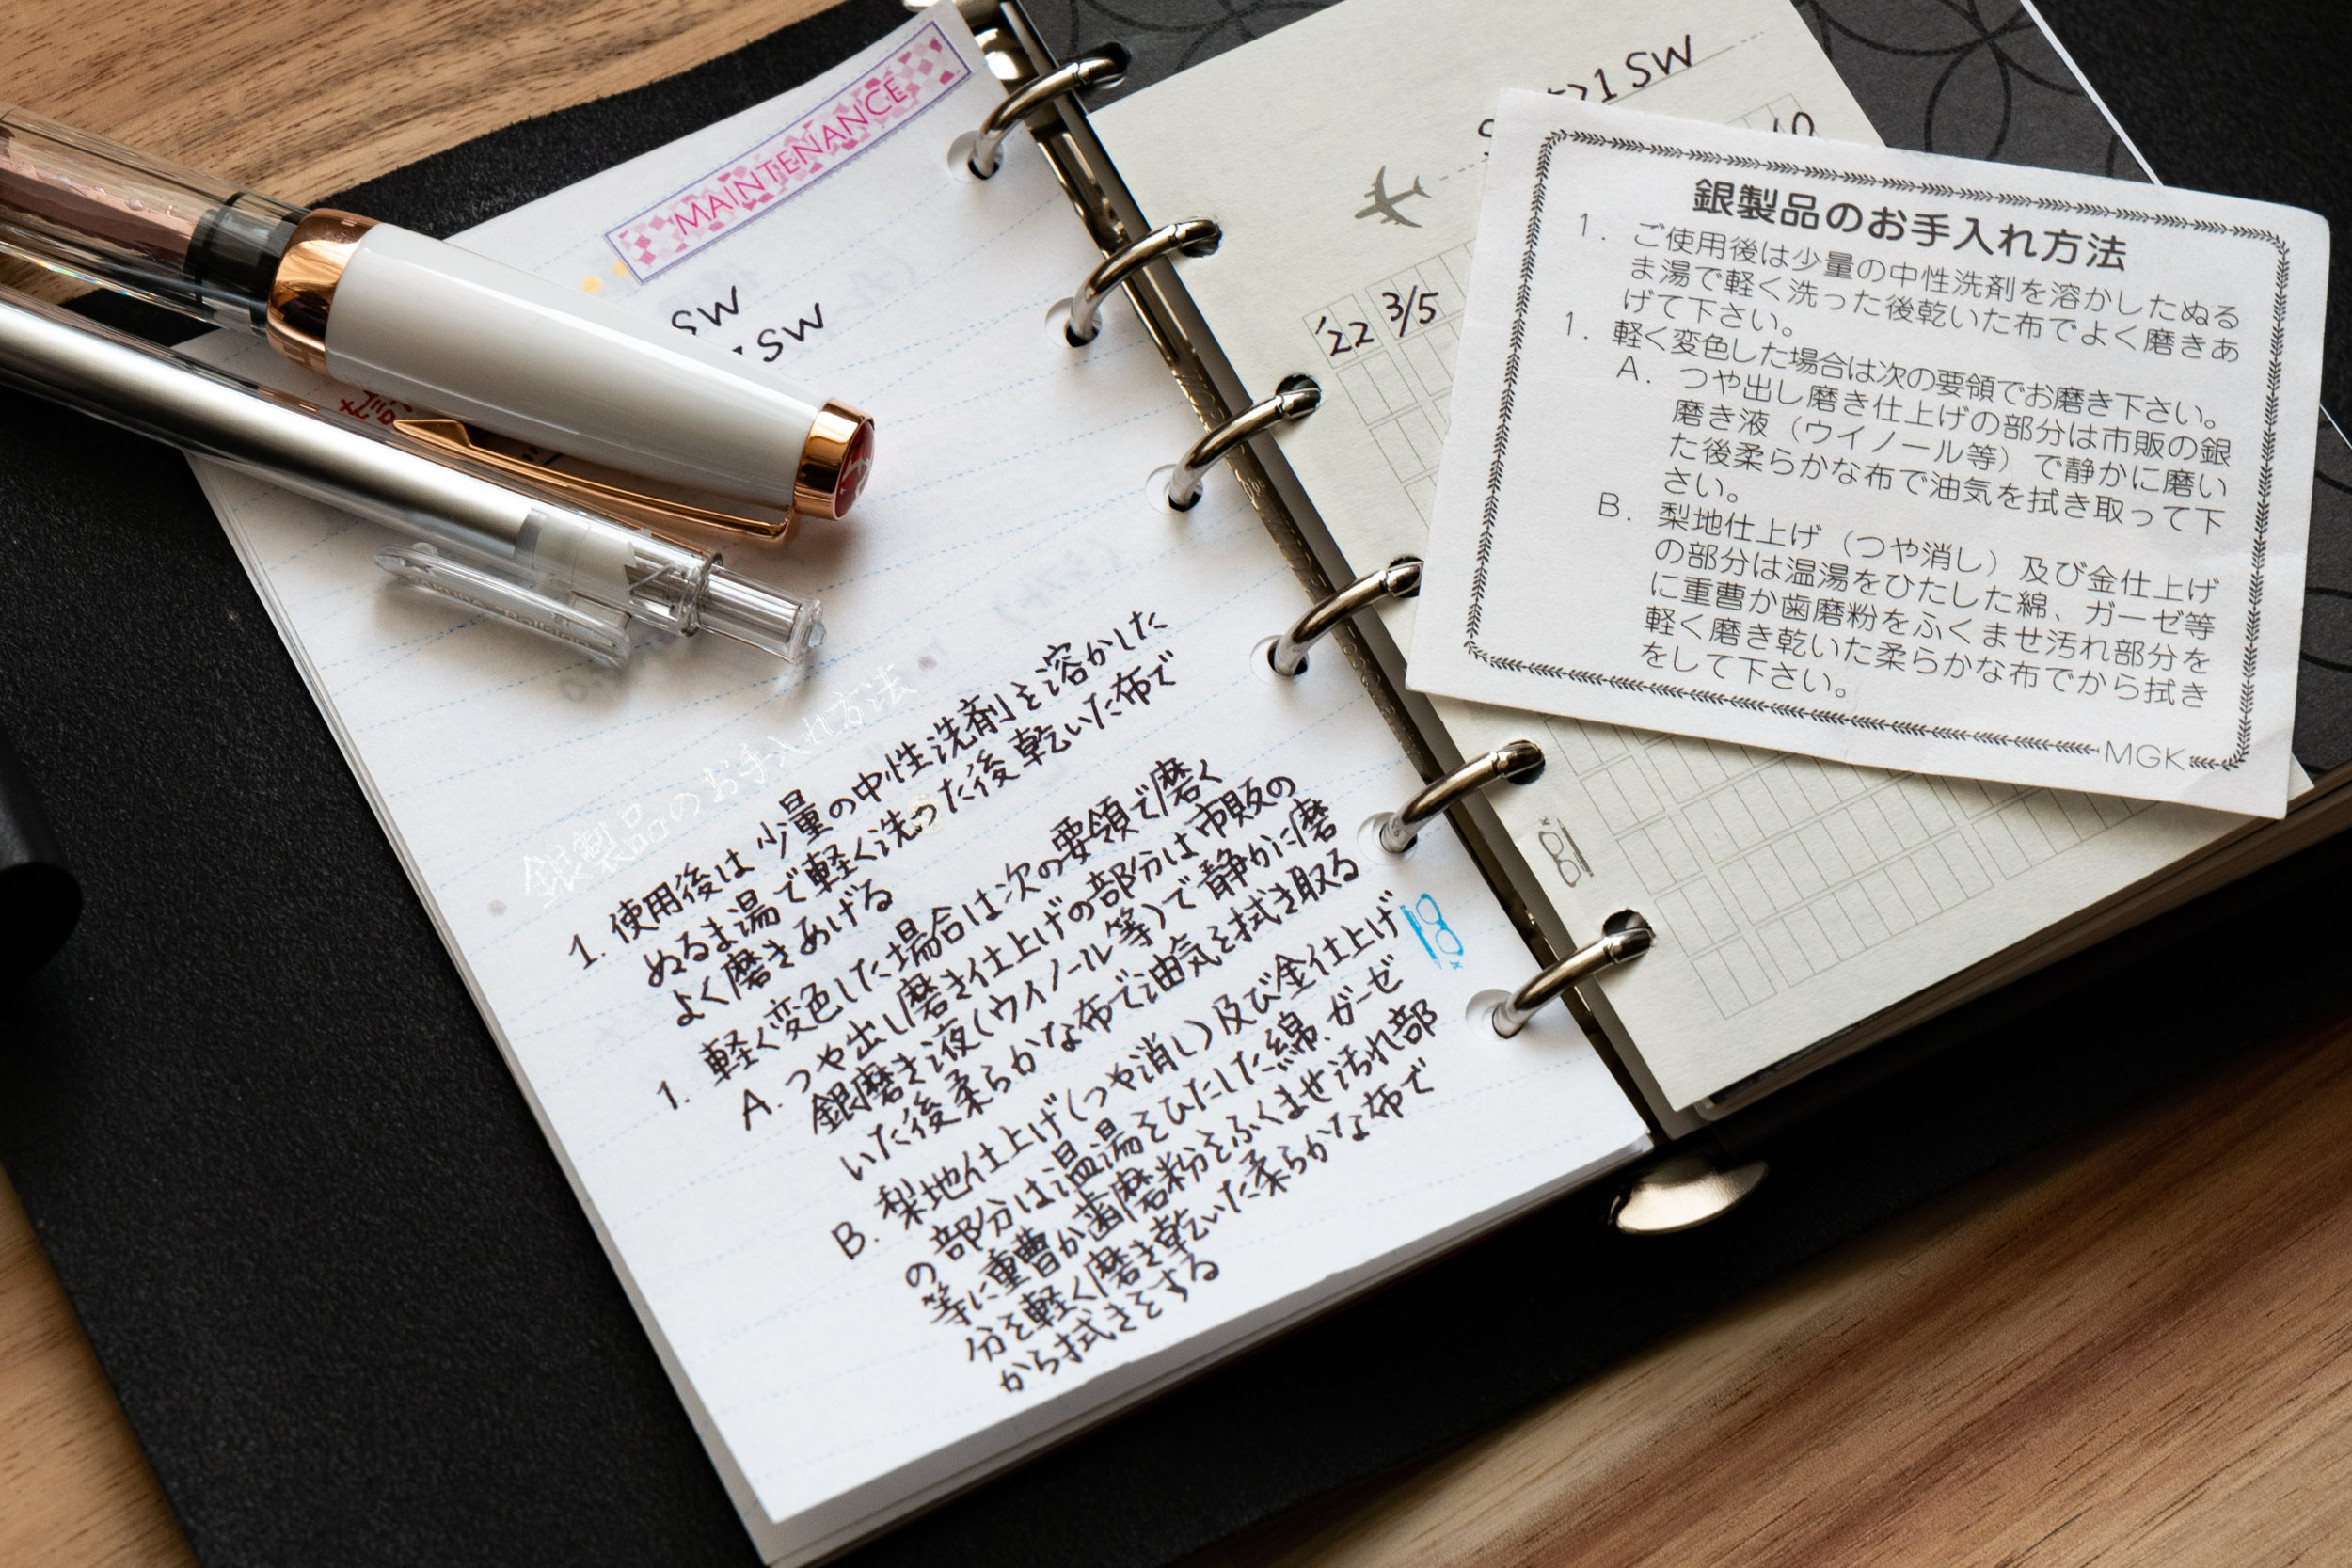 MAINTENANCE
SW
SW
銀製品のお手入れ方法
1. 使用後は少量の中性洗剤を溶かした
ぬるま湯で軽く洗った後乾いた布で
よく磨きあげる
1. 軽く変色した場合は次の要領で磨く
A. つや出し磨き仕上げの部分は市販の
銀磨き液(ウイノール等)で静かに磨
いた後柔らかな布で油気を拭き取る
B. 梨地仕上げ(つや消し)及び金仕上げ
の部分は温湯をひたした綿、ガーゼ
等に重曹か歯磨粉をふくませ汚れ部
分を軽く磨き乾いた柔らかな布で
から拭きをする
1 SW
'22 3/5
銀製品のお手入れ方法
1. ご使用後は少量の中性洗剤を溶かしたぬる
ま湯で軽く洗った後乾いた布でよく磨きあ
げて下さい。
1. 軽く変色した場合は次の要領でお磨き下さい。
A. つや出し磨き仕上げの部分は市販の銀
磨き液(ウイノール等)で静かに磨い
た後柔らかな布で油気を拭き取って下
さい。
B. 梨地仕上げ(つや消し)及び金仕上げ
の部分は温湯をひたした綿、ガーゼ等
に重曹か歯磨粉をふくませ汚れ部分を
軽く磨き乾いた柔らかな布でから拭き
をして下さい。
MGK